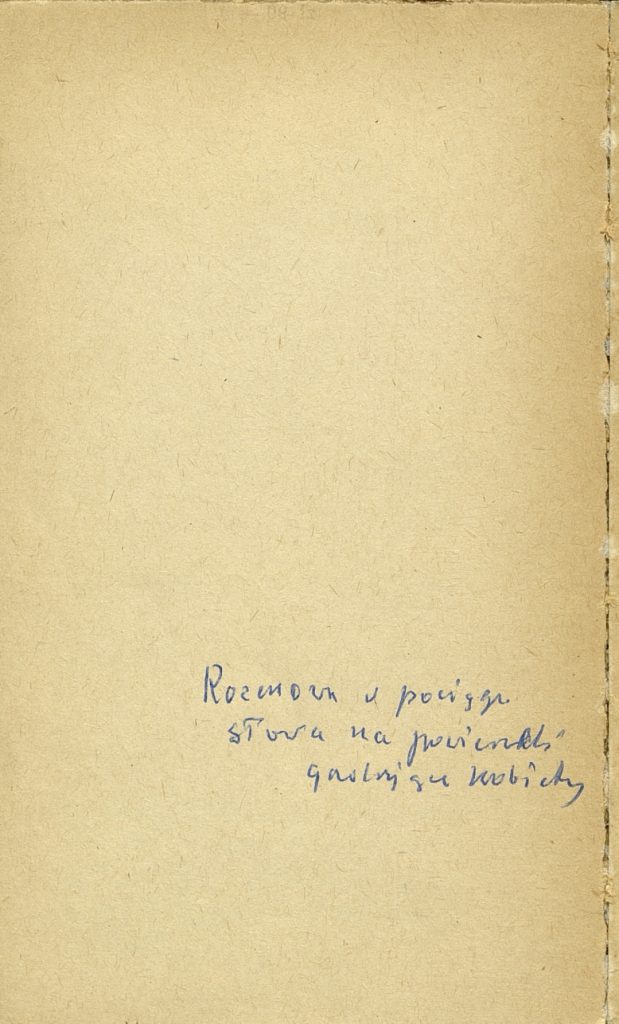 Rozmowa w pociągu
słowa na powierzchni
kobiety